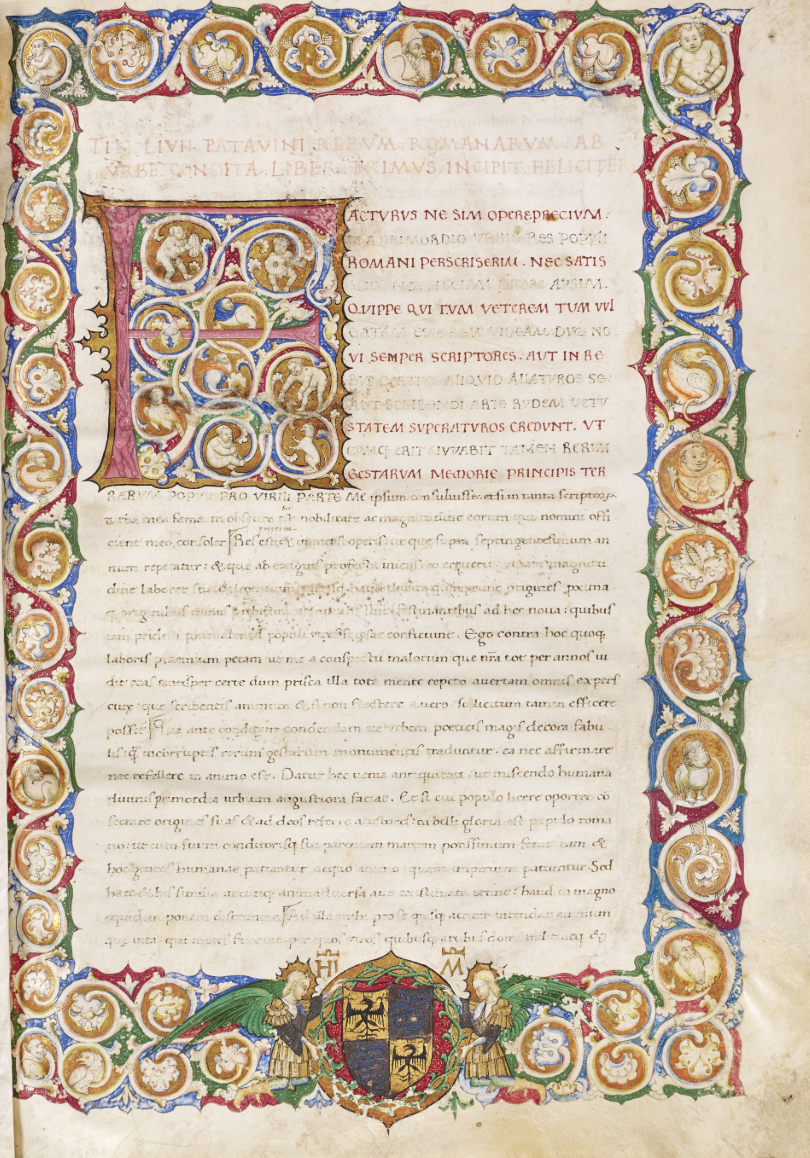 TITI LIVII PATAVINI RERVM ROMANARVM AB
VRBE CONDITA LIBER PRIMVS INCIPIT FELICITER
FACTVRVS NE SIM OPEREPRECIVM
A PRIMORDIO VRBIS RES POPVLI
ROMANI PERSCRISERIM. NEC SATIS
SCIO NEC SI SCIAM DICERE AVSIM.
QVIPPE QVI TVM VETEREM TVM VVL
GATAM ESSE REM VIDEAM DVM NO
VI SEMPER SCRIPTORES. AVT IN RE
BVS CERTIVS ALIQVID ALLATVROS SE
AVT SCRIBENDI ARTE RVDEM VETV
STATEM SVPERATVROS CREDVNT. VT
CVMQ ERIT IVVABIT TAMEN RERVM
GESTARVM MEMORIE PRINCIPIS TER
RARVM POPVLI PRO VIRILI PARTE ME ipsum consuluisse et si in tanta scriptorum
turba mea fama in obscuro sit nobilitate ac magnitudine eorum que nomini offi
cient meo, consoler Res est & immensi operis: ut que supra septingentesimum an
num repetatur: & que ab exiguis profecta iniciis eo
origines proxima
ad hec noua: quibus
iam pridem populi uires se ipse conficiunt. Ego contra hoc quoq
laboris premium petam ut me a conspectu malorum que nra tot per annos ui
dit etas tantisper certe dum prisca illa tota mente repeto auertam omnis expers
cure que scribentis animum & si non flectere a uero: sollicitum tamen efficere
possit Que ante conditam condendam ue urbem poeticis magis decora fabu
lis q incorruptis rerum gestarum monumentis traduntur. ea nec affirmare
nec refellere in animo est. Datur hec uenia antiquitati: ut miscendo humana
diuinis primordia urbium augustiora faciat. Et si cui populo licere oportet co
secrare origines suas & ad deos referre auctores: ea belli gloria est populo roma
no: ut cum suum conditorisq sui parentem martem potissimum ferat tam &
hoc gentes humane patiantur equo animo quam imperium patiuntur. Sed
hec & his similia animaduersa aut existimata erunt: haud in magno
equidem ponam discrimine Ad illa mihi pro se quisq acriter intendat animum
que uita, qui mores fuerint: per quos uiros quibusq artibus domi militieq &
HI M